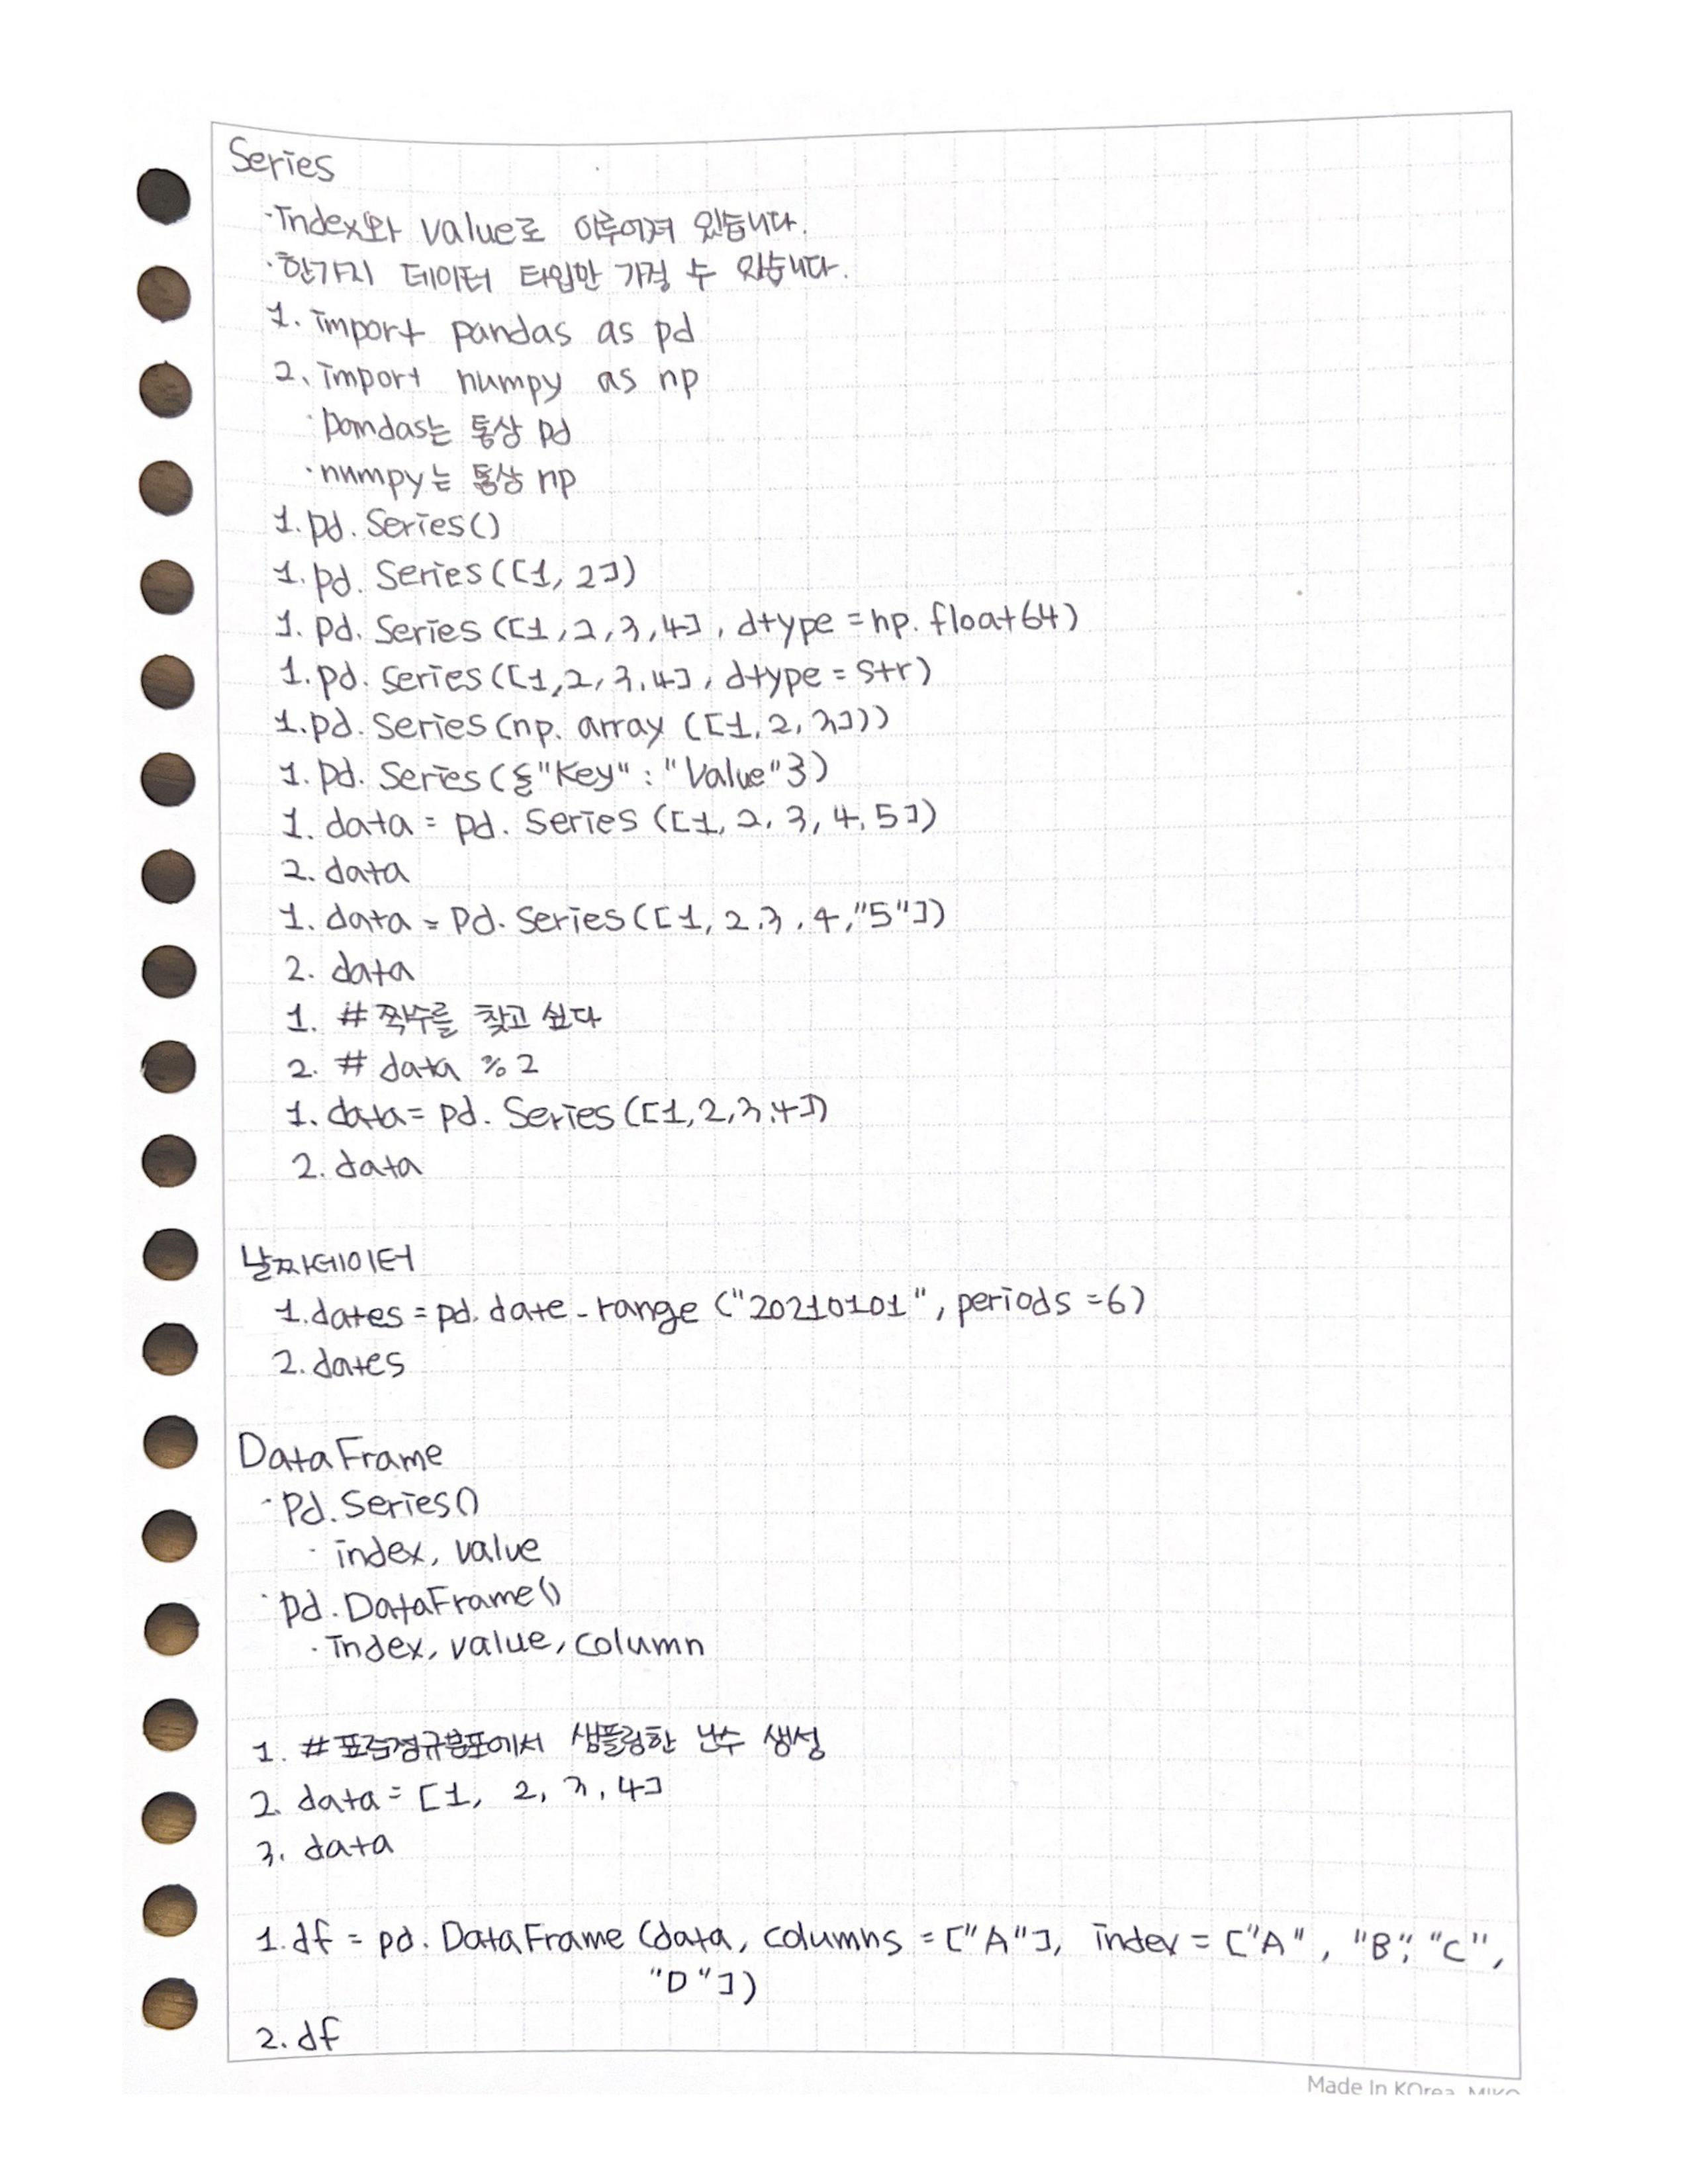 Series
·Index와 value로 이루어져 있습니다.
·한가지 데이터 타입만 가질 수 있습니다.
1. import pandas as pd
2. import numpy as np
·pandas는 통상 pd
·numpy는 통상 np
1. pd. Series()
1. pd. Series([1, 2])
1. pd. Series([1,2,3,4], dtype = np. float64)
1. pd. Series([1,2,3,4], dtype = str)
1. pd. Series(np. array ([1, 2, 3]))
1. pd. Series({"Key" : "Value"})
1. data = pd. Series ([1, 2, 3, 4, 5])
2. data
1. data = Pd. Series([1, 2,3, 4,"5"])
2. data
1. # 짝수를 찾고 싶다
2. # data % 2
1. data = pd. Series([1,2,3,4])
2. data
날짜데이터
1. dates = pd. date_range ("20210101", periods =6)
2. dates
DataFrame
·Pd. Series()
· index, value
·pd. DataFrame()
· Index, value, column
1. # 표준정규분포에서 샘플링한 난수 생성
2. data = [1, 2, 3, 4]
3. data
1. df = pd. DataFrame (data, columns = ["A"], index = ["A", "B", "C",
"D"])
2. df
Made In KOrea